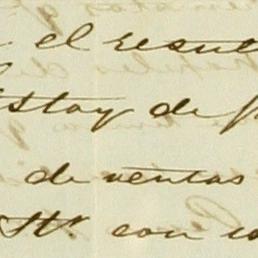 el resul
Estoy de
de ventas
Str. con